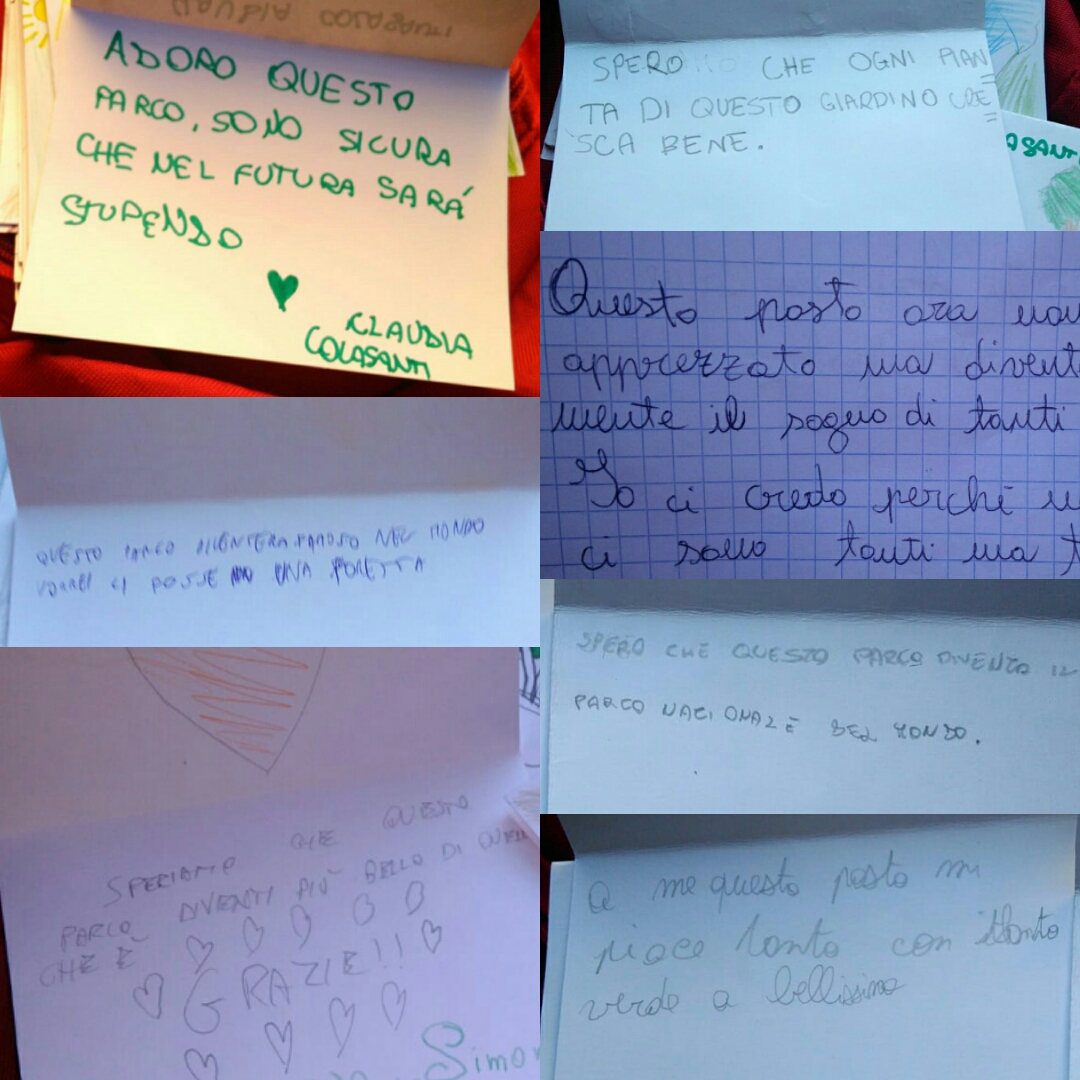 ADORO QUESTO
PARCO, SONO SICURA
CHE NEL FUTURA SARÁ
STUPENDO
CLAUDIA
COLASANTI
SPERO CHE OGNI PIAN
TA DI QUESTO GIARDINO CRE
SCA BENE.
ASANTI
Questo posto ora non
apprezzato ma divent
mente il sogno di tanti
Io ci credo perché
ci sono tanti ma t
QUESTO PARCO DIVENTERA FAMOSO NEL MONDO
VORREI CI FOSSE UNA FORESTA
SPERO CHE QUESTO PARCO DIVENTO IL
PARCO NAZIONALE DEL MONDO.
SPERIAMO CHE QUESTO
PARCO DIVENTI PIÙ BELLO DI QUELL
CHE È
GRAZIE!!
Simon
A me questo posto mi
piace tanto con
verde a bellissimo